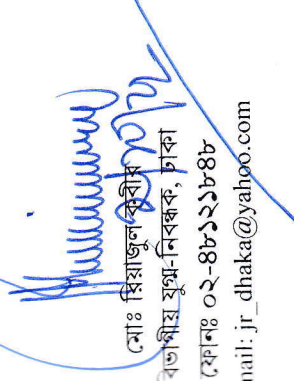 মোঃ রিয়াজুল কবীর
বিভাগীয় যুগ্ম-নিবন্ধক, ঢাকা
ফোনঃ ০২-৪৮১২১৮৪৮
mail: jr_dhaka@yahoo.com